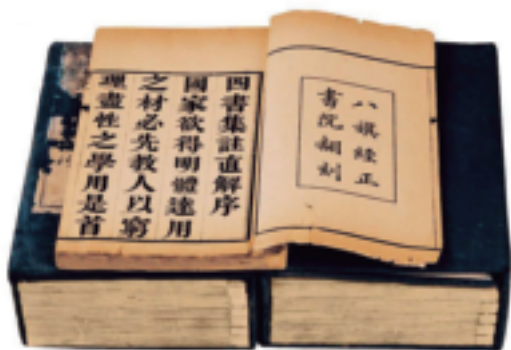 八旗經正
書院翻刻
四書集註直解序
國家欲得明體達用
之材必先教人以窮
理盡性之學用是首